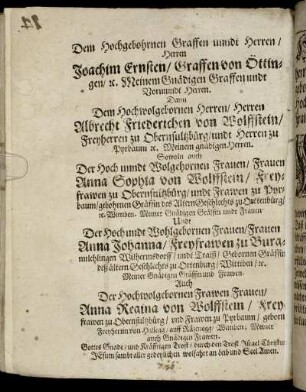 Dem Hochgebohrnen Graffen unndt Herren/
Herren
Joachim Ernsten/ Graffen von Ottin-
gen/ ꝛc. Meinem Gnädigen Graffen undt
Herren.
Dann
Dem Hochwolgebornen Herren/ Herren
Albrecht Friederichen von Wolffstein/
Freyherren zu Obernsultzbürg/ undt Herren zu
Pyrbaum ꝛc. Meinem gnädigen Herren.
Sowoln auch
Der Hoch unndt Wolgebornen Frauen/ Frauen
Anna Sophia von Wolffstein/ Frey-
frawen zu Obernsultzbürg/ undt Frawen zu Pyr-
baum/ gebohrnen Gräffin deß Alten Geschlechts zu Ortenburg/
ꝛc. Wittiben. Meiner Gnädigen Gräffin undt Frauen/
Undt
Der Hoch undt Wohlgebornen Frauen/ Frauen
Anna Johanna/ Freyfrawen zu Burg-
milchlingen Wilhermsdorff/ undt Gebornen Gräffin
deß ältern Geschlechts zu Ortenburg/ Wittiben/ ꝛc.
Meiner Gnädigen Gräffin und Frawen.
Auch
Der Hochwolgebornen Frawen Frauen/
Anna Regina von Wolffstein/ Frey
frawen zu Obernsultzbürg/ und Frawen zu Pyrbaum/ geborn
Freyherrin von auff Wittiben/ Meiner
auch Gnädigen Frawen.
Gottes Gnade/ und kräfftigen Trost/ durch den Trost Israel Christum
JEsum sambt aller gedeylichen wolfahrt an Leib und Seel Amen.